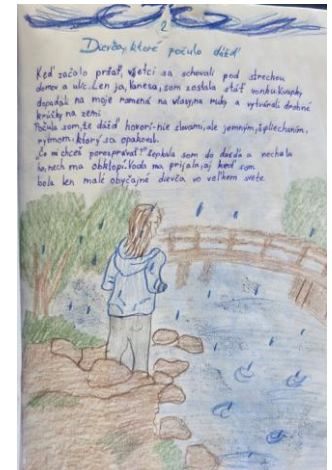 2
Dievča, ktoré počulo dážď
Keď začalo pršať, všetci sa schovali pod strechou
domov a ulíc. Len ja, Vanesa, som zostala stáť vonku. Kvapky
dopadali na moje ramená na vlasy, na ruky a vytvárali drobné
krúžky na zemi.
Počula som, že dážď hovorí - nie slovami, ale jemným, špliechaním,
rytmom, ktorý sa opakoval.
„Čo mi chceš porozprávať?" šepkala som do dažďa a nechala
ho, nech ma obklopí. Voda ma prijala, aj keď som
bola len malé obyčajné dievča vo veľkom svete.